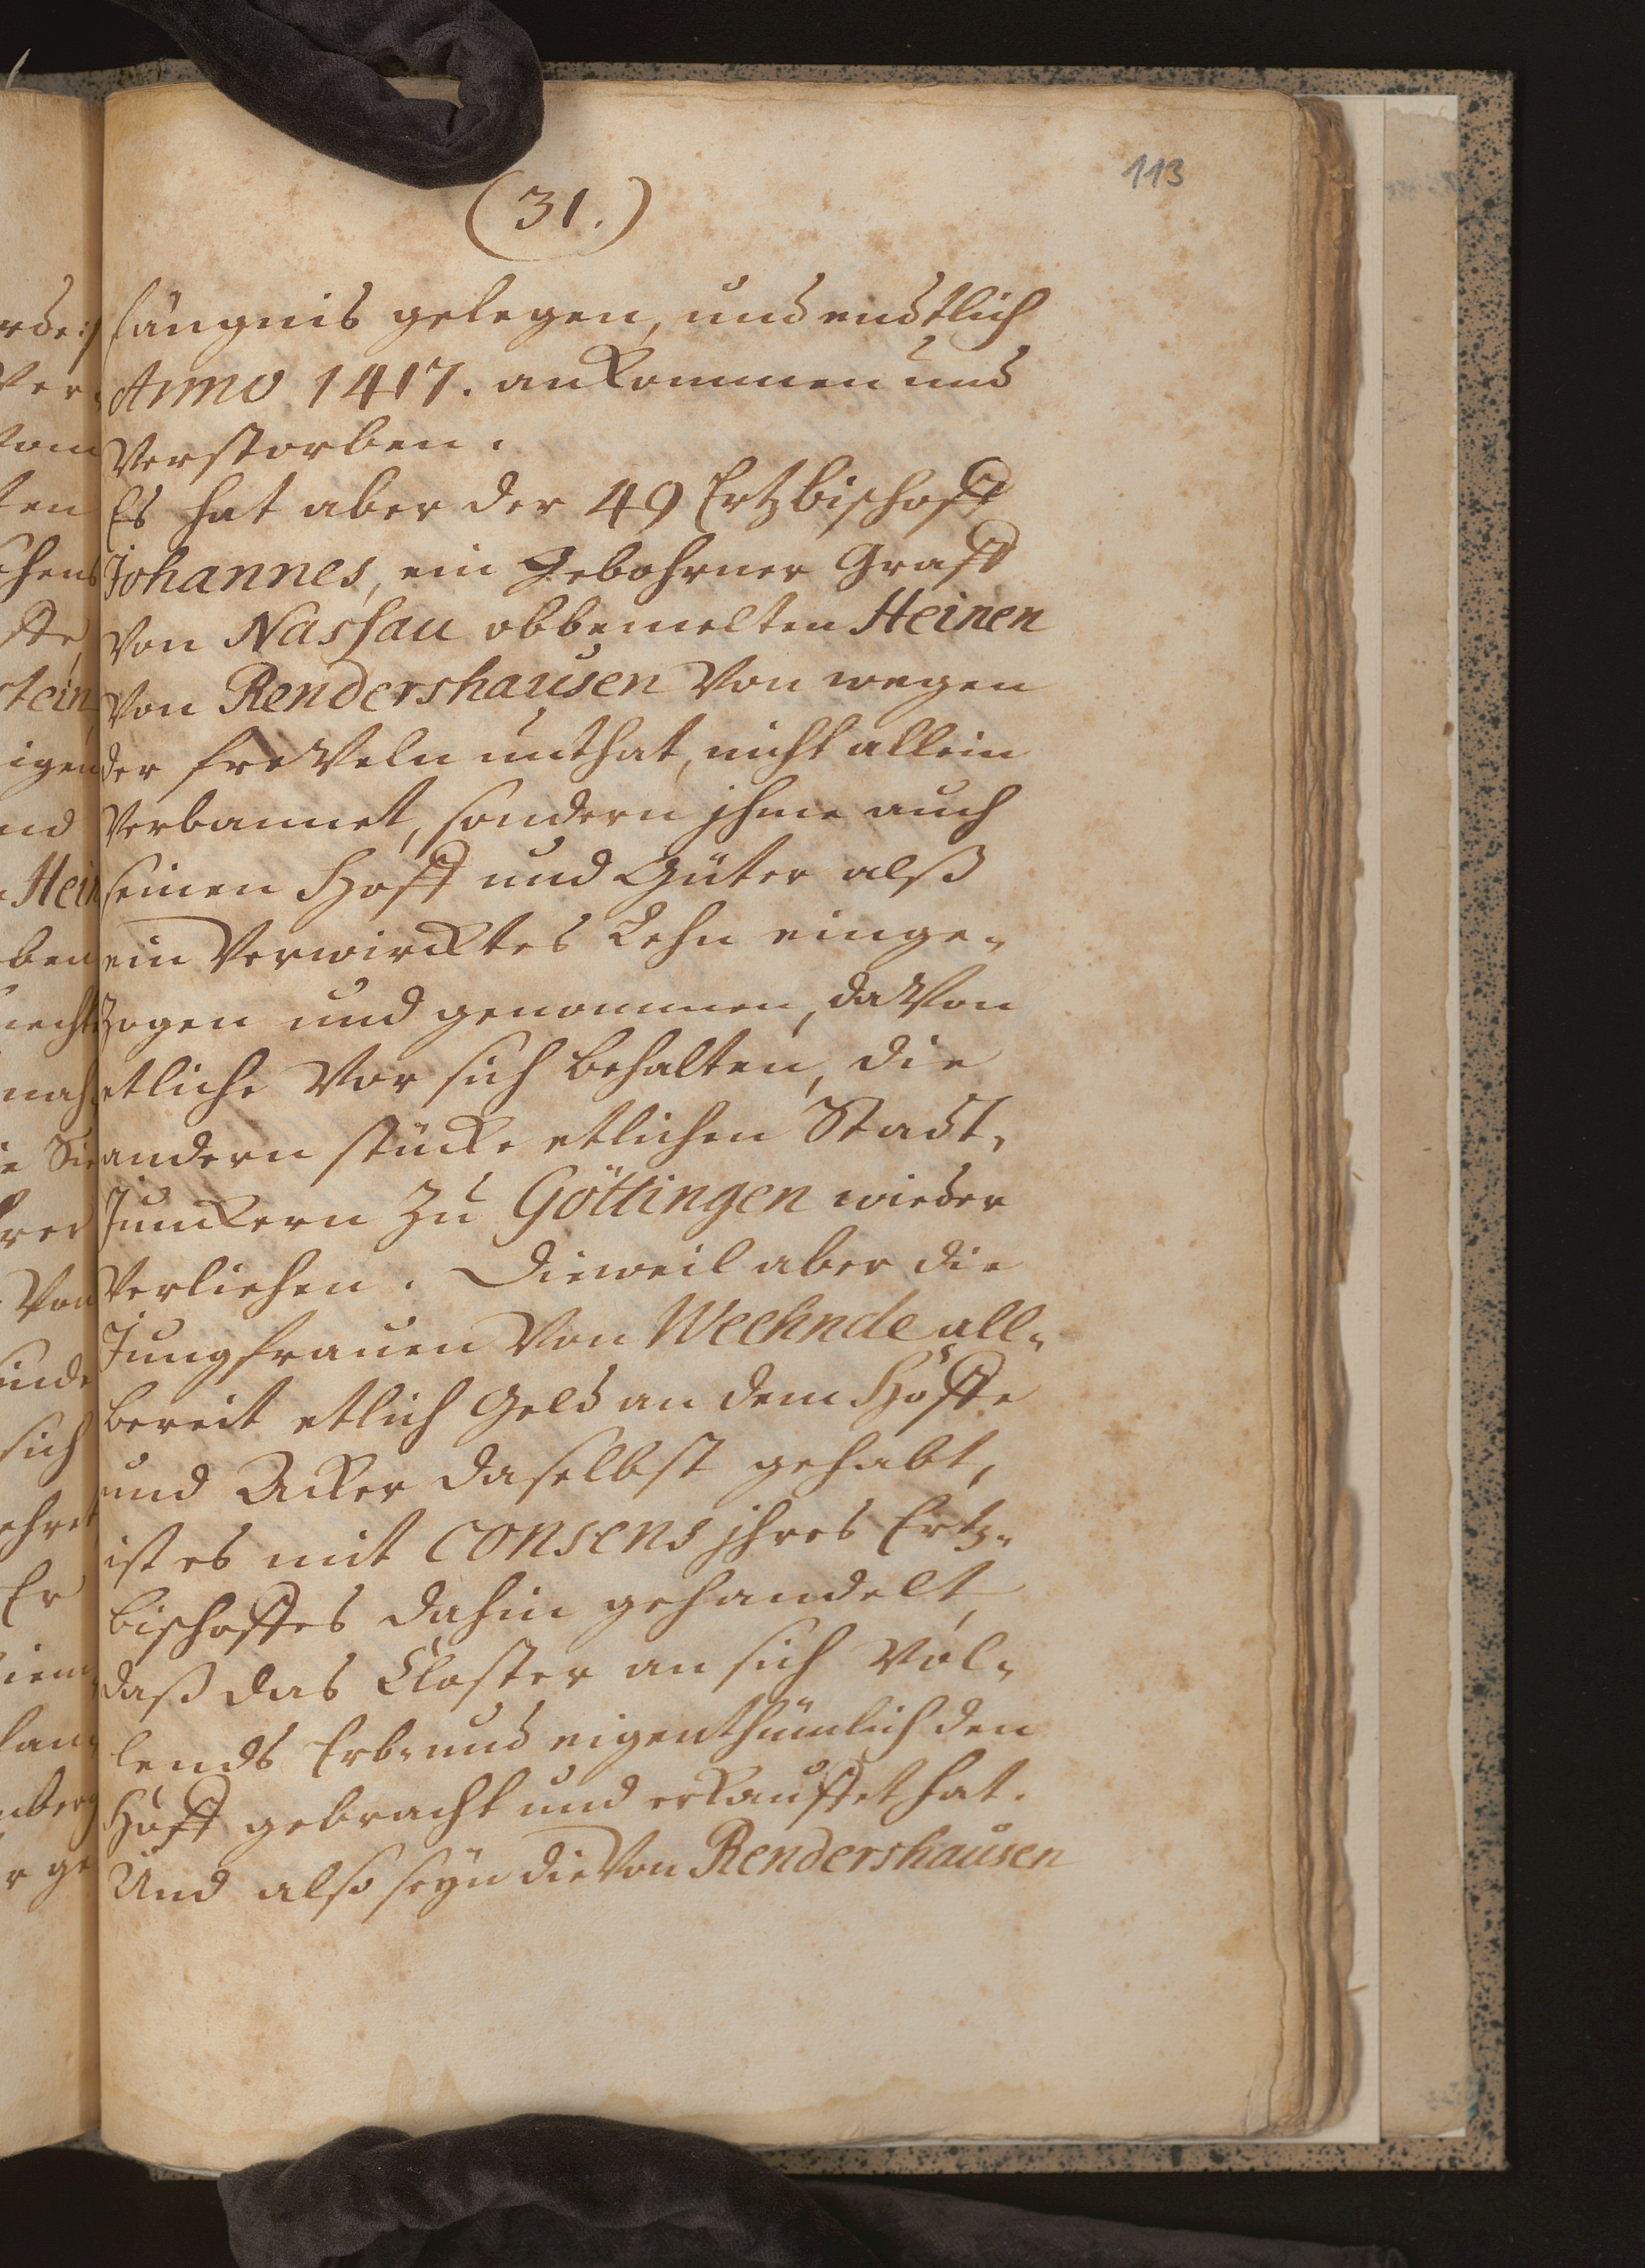 113
(31.)
fängnis gelegen, und endtlich
Anno 1417. ankommen und
Verstorben.
Es hat aber der 49 Ertzbischoff
Johannes, ein Gebohrner Graff
Von Nassau obbemelten Heinen
Von Rendershausen Von wegen
der freVeln unthat, nicht allein
Verbannet, sondern jhme auch
seinen Hoff und Güter alß
ein Verwircktes Lehn einge-
zogen und genommen, daVon
etliche Vor sich behalten, die
andern stücke etlichen Stadt-
Junckern zu Göttingen wieder
Verliehen. Dieweil aber die
Jungfrauen Von Weehnde all-
bereit etlich Geld an dem Hoffe
und Acker daselbst gehabt,
ist es mit consens jhres Ertz-
bischoffes dahin gehandelt,
daß das Closter an sich Vol-
lends Erb- und eigenthümlich den
Hoff gebracht und erkauffet hat.
Und also seyn die Von Rendershausen